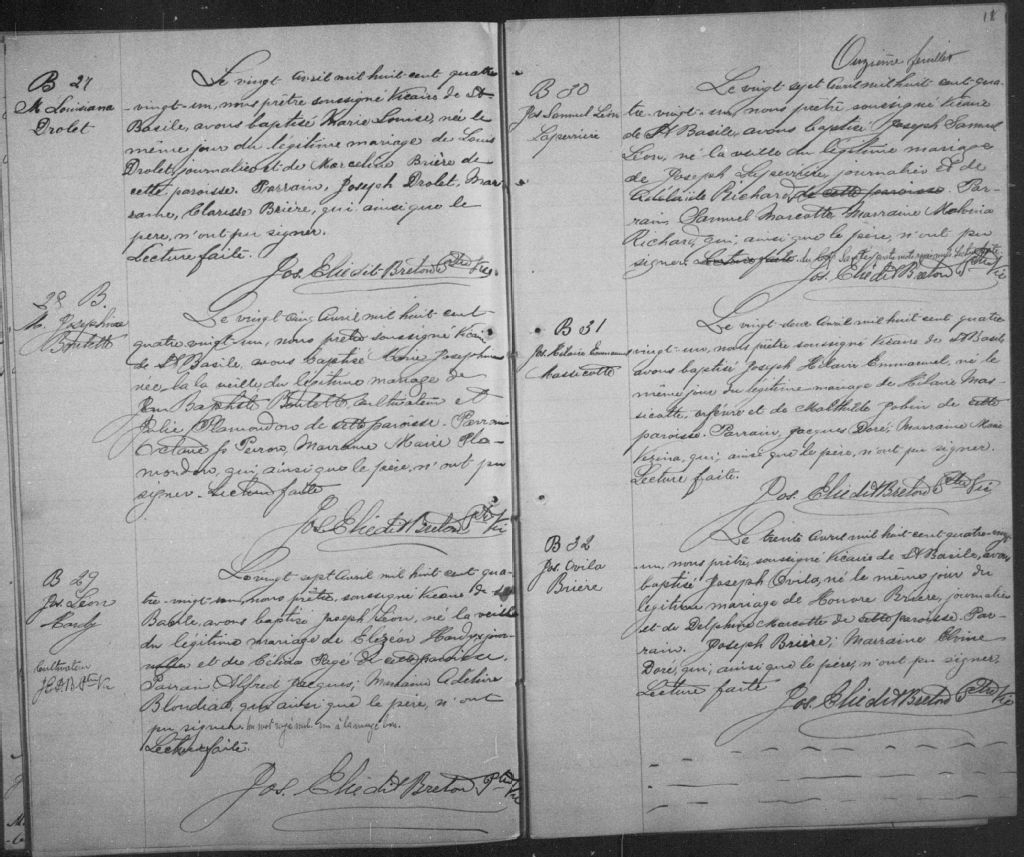 B 27
M. Louisiana
Drolet
Le vingt avril mil huit cent quatre
vingt-un, nous prêtre soussigné Vicaire de St
Basile, avons baptisé Marie Louise, née le
même jour du légitime mariage de Louis
Drolet, journalier et de Marceline Brière de
cette paroisse. Parrain, Joseph Drolet, Mar-
raine, Clarisse Brière, qui ainsi que le
père, n'ont pu signer.
Lecture faite.
Jos. Elie dit Breton Ptre Vic
28 B.
M. Josephine
Boutette
Le vingt cinq Avril mil huit cent
quatre vingt-un, nous prêtre soussigné Vicaire
de St Basile, avons baptisé Marie Josephine
née la veille du légitime mariage de
Baptiste cultivateur et
Julie Plamondon de cette paroisse. Parrain
Octave Marraine Marie Pla-
mondon, qui, ainsi que le père, n'ont pu
signer. Lecture faite
Jos. Elie dit Breton Ptre Vic
B 29
Jos. Léon
Hardy
Cultivateur
J.E.D.B. Ptre Vic
Le vingt sept Avril mil huit cent qua-
tre-vingt-un, nous prêtre, soussigné Vicaire de St
Basile, avons baptisé Joseph Léon, né la veille
du légitime mariage de Elezéar Hardy x jour-
nalier et de Célida Pagé de cette paroisse.
Parrain, Alfred Jacques; Marraine Adeline
Blondeau, qui, ainsi que le père, n'ont
pu signer. Un mot rayé nul. un à la marge bon.
Lecture faite.
Jos. Elie dit Breton Ptre Vic
Onzième feuillet
B 30
Jos Samuel Léon
Laperrière
Le vingt sept Avril mil huit cent qua-
tre-vingt-un, nous prêtre soussigné Vicaire
de St Basile, avons baptisé Joseph Samuel
Léon, né la veille du légitime mariage
de Joseph Laperrière journalier et de
Adélaïde Richard, de cette paroisse. Par-
rain, Samuel Marcotte Marraine Malvina
Richard, qui, ainsi que le père, n'ont pu
signer. Lecture faite
Jos. Elie dit Breton Ptre Vic
B 31
Jos. Hilaire Emmanuel
Massicotte
Le vingt-deux Avril mil huit cent quatre
vingt-un, nous prêtre soussigné Vicaire de St Basile
avons baptisé Joseph Hilaire Emmanuel, né le
même jour du légitime mariage de Hilaire Mas-
sicotte, orfèvre et de Mathilde Jobin de cette
paroisse. Parrain, Jacques Doré; Marraine Marie
Vézina, qui, ainsi que le père, n'ont pu signer.
Lecture faite.
Jos. Elie dit Breton Ptre Vic
B 32
Jos. Ovila
Brière
Le trente Avril mil huit cent quatre-vingt-
un, nous prêtre, soussigné Vicaire de St Basile, avons
baptisé Joseph Ovila, né le même jour du
légitime mariage de Honoré Brière, journalier
et de Delphine Marcotte de cette paroisse. Par-
rain. Joseph Brière; Marraine Elvine
Doré, qui, ainsi que le père, n'ont pu signer,
Lecture faite
Jos. Elie dit Breton Ptre Vic